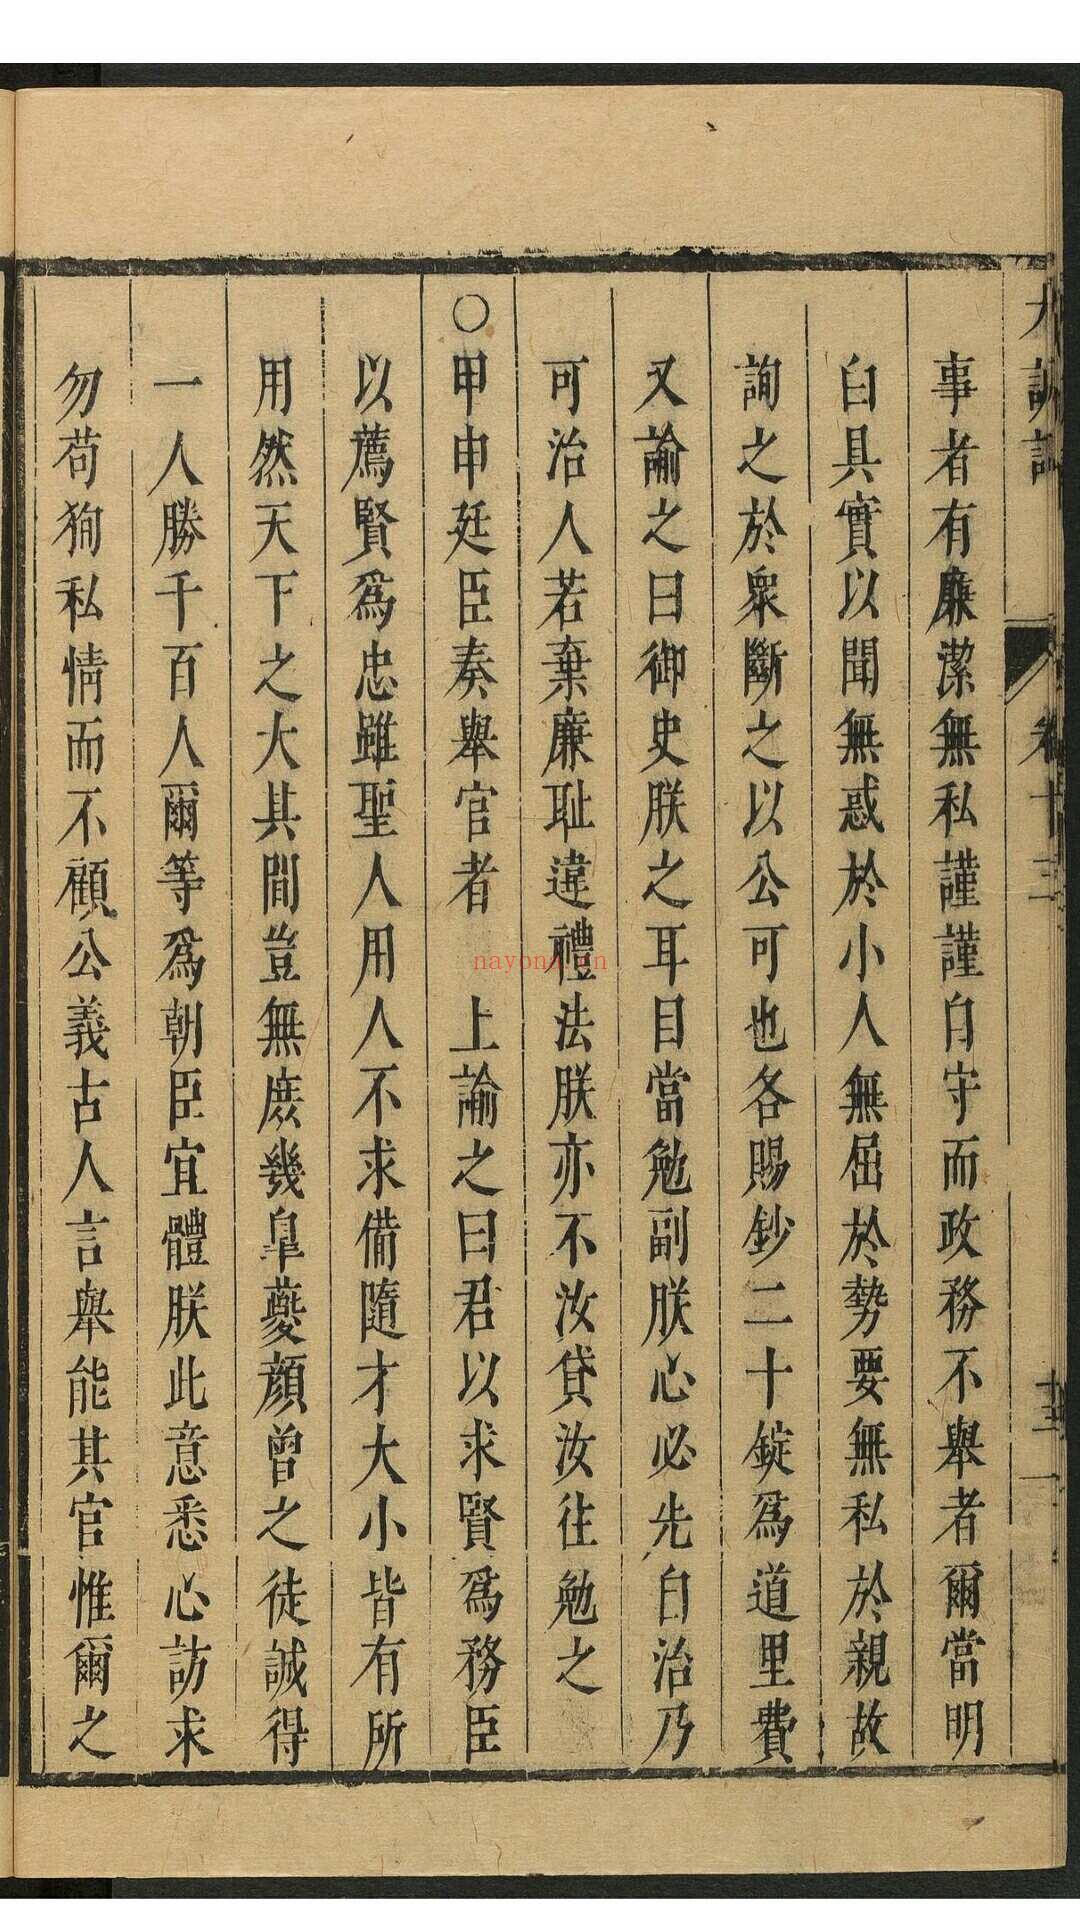 大訓記 卷十三 十三
事者有廉潔無私謹謹自守而政務不舉者爾當明
白具實以聞無惑於小人無屈於勢要無私於親故
詢之於衆斷之以公可也各賜鈔二十錠爲道里費
又諭之曰御史朕之耳目當勉副朕心必先自治乃
可治人若棄廉耻違禮法朕亦不汝貸汝往勉之
○甲申廷臣奏舉官者 上諭之曰君以求賢爲務臣
以薦賢爲忠雖聖人用人不求備隨才大小皆有所
用然天下之大其間豈無庶幾皐夔顔曾之徒誠得
一人勝千百人爾等爲朝臣宜體朕此意悉心訪求
勿苟狥私情而不顧公義古人言舉能其官惟爾之
nayona.cn